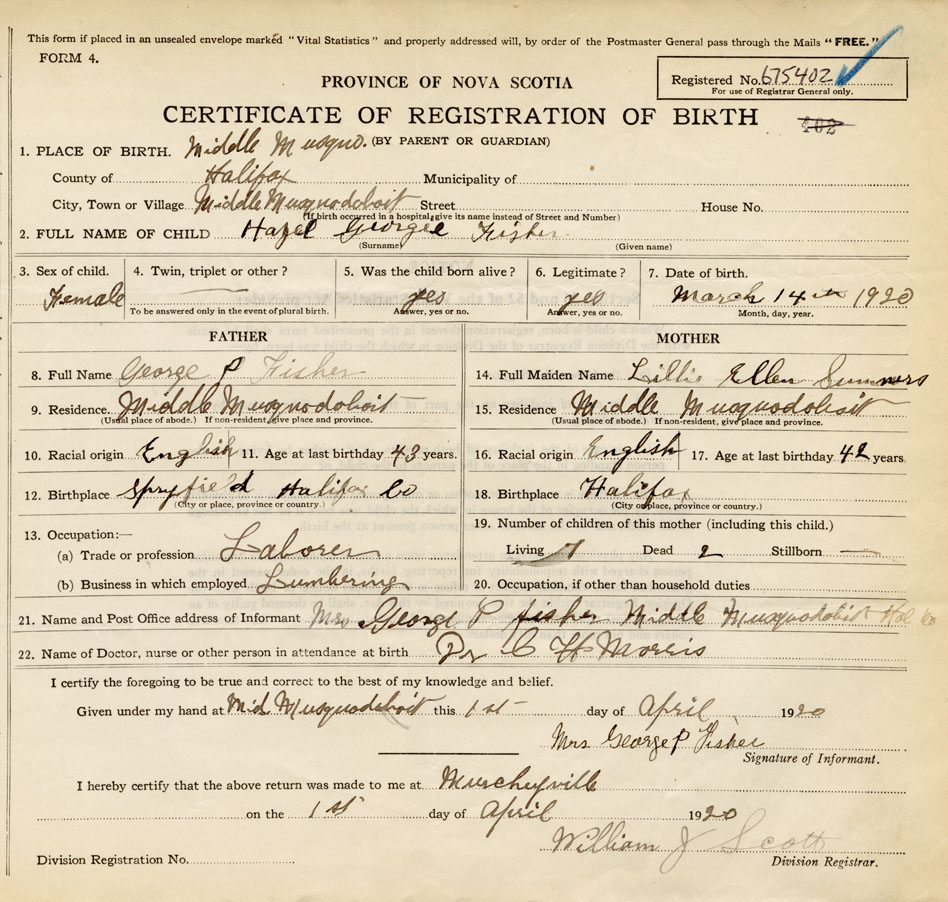 This form if placed in an unsealed envelope marked "Vital Statistics" and properly addressed will, by order of the Postmaster General pass through the Mails "FREE."
FORM 4.
Registered No. 675402
For use of Registrar General only.
PROVINCE OF NOVA SCOTIA
CERTIFICATE OF REGISTRATION OF BIRTH
(BY PARENT OR GUARDIAN)
1. PLACE OF BIRTH. Middle Musquo.
County of Halifax Municipality of
City, Town or Village Middle Musquodoboit Street House No.
(If birth occurred in a hospital, give its name instead of Street and Number)
2. FULL NAME OF CHILD Hazel Georgee Fisher
(Surname) (Given name)
3. Sex of child. 4. Twin, triplet or other? 5. Was the child born alive? 6. Legitimate? 7. Date of birth.
Female yes yes March 14th 1920
To be answered only in the event of plural birth. Answer, yes or no. Answer, yes or no. Month, day, year.
FATHER MOTHER
8. Full Name George P Fisher 14. Full Maiden Name Lillie Ellen Summers
9. Residence. Middle Musquodoboit 15. Residence Middle Musquodoboit
(Usual place of abode.) If non-resident, give place and province. (Usual place of abode.) If non-resident, give place and province.
10. Racial origin English 11. Age at last birthday 43 years. 16. Racial origin English 17. Age at last birthday 42 years.
12. Birthplace Spryfield Halifax Co 18. Birthplace Halifax
(City or place, province or country.) (City or place, province or country.)
13. Occupation:— 19. Number of children of this mother (including this child.)
(a) Trade or profession Laborer Living 7 Dead 2 Stillborn —
(b) Business in which employed Lumbering 20. Occupation, if other than household duties
21. Name and Post Office address of Informant Mrs George P fisher Middle Musquodoboit Hal Co
22. Name of Doctor, nurse or other person in attendance at birth Dr C H Morris
I certify the foregoing to be true and correct to the best of my knowledge and belief.
Given under my hand at Mid Musquodoboit this 1st day of April 1920
Mrs George P Fisher
Signature of Informant.
I hereby certify that the above return was made to me at Murchyville
on the 1st day of April 1920
William J Scott
Division Registration No. Division Registrar.